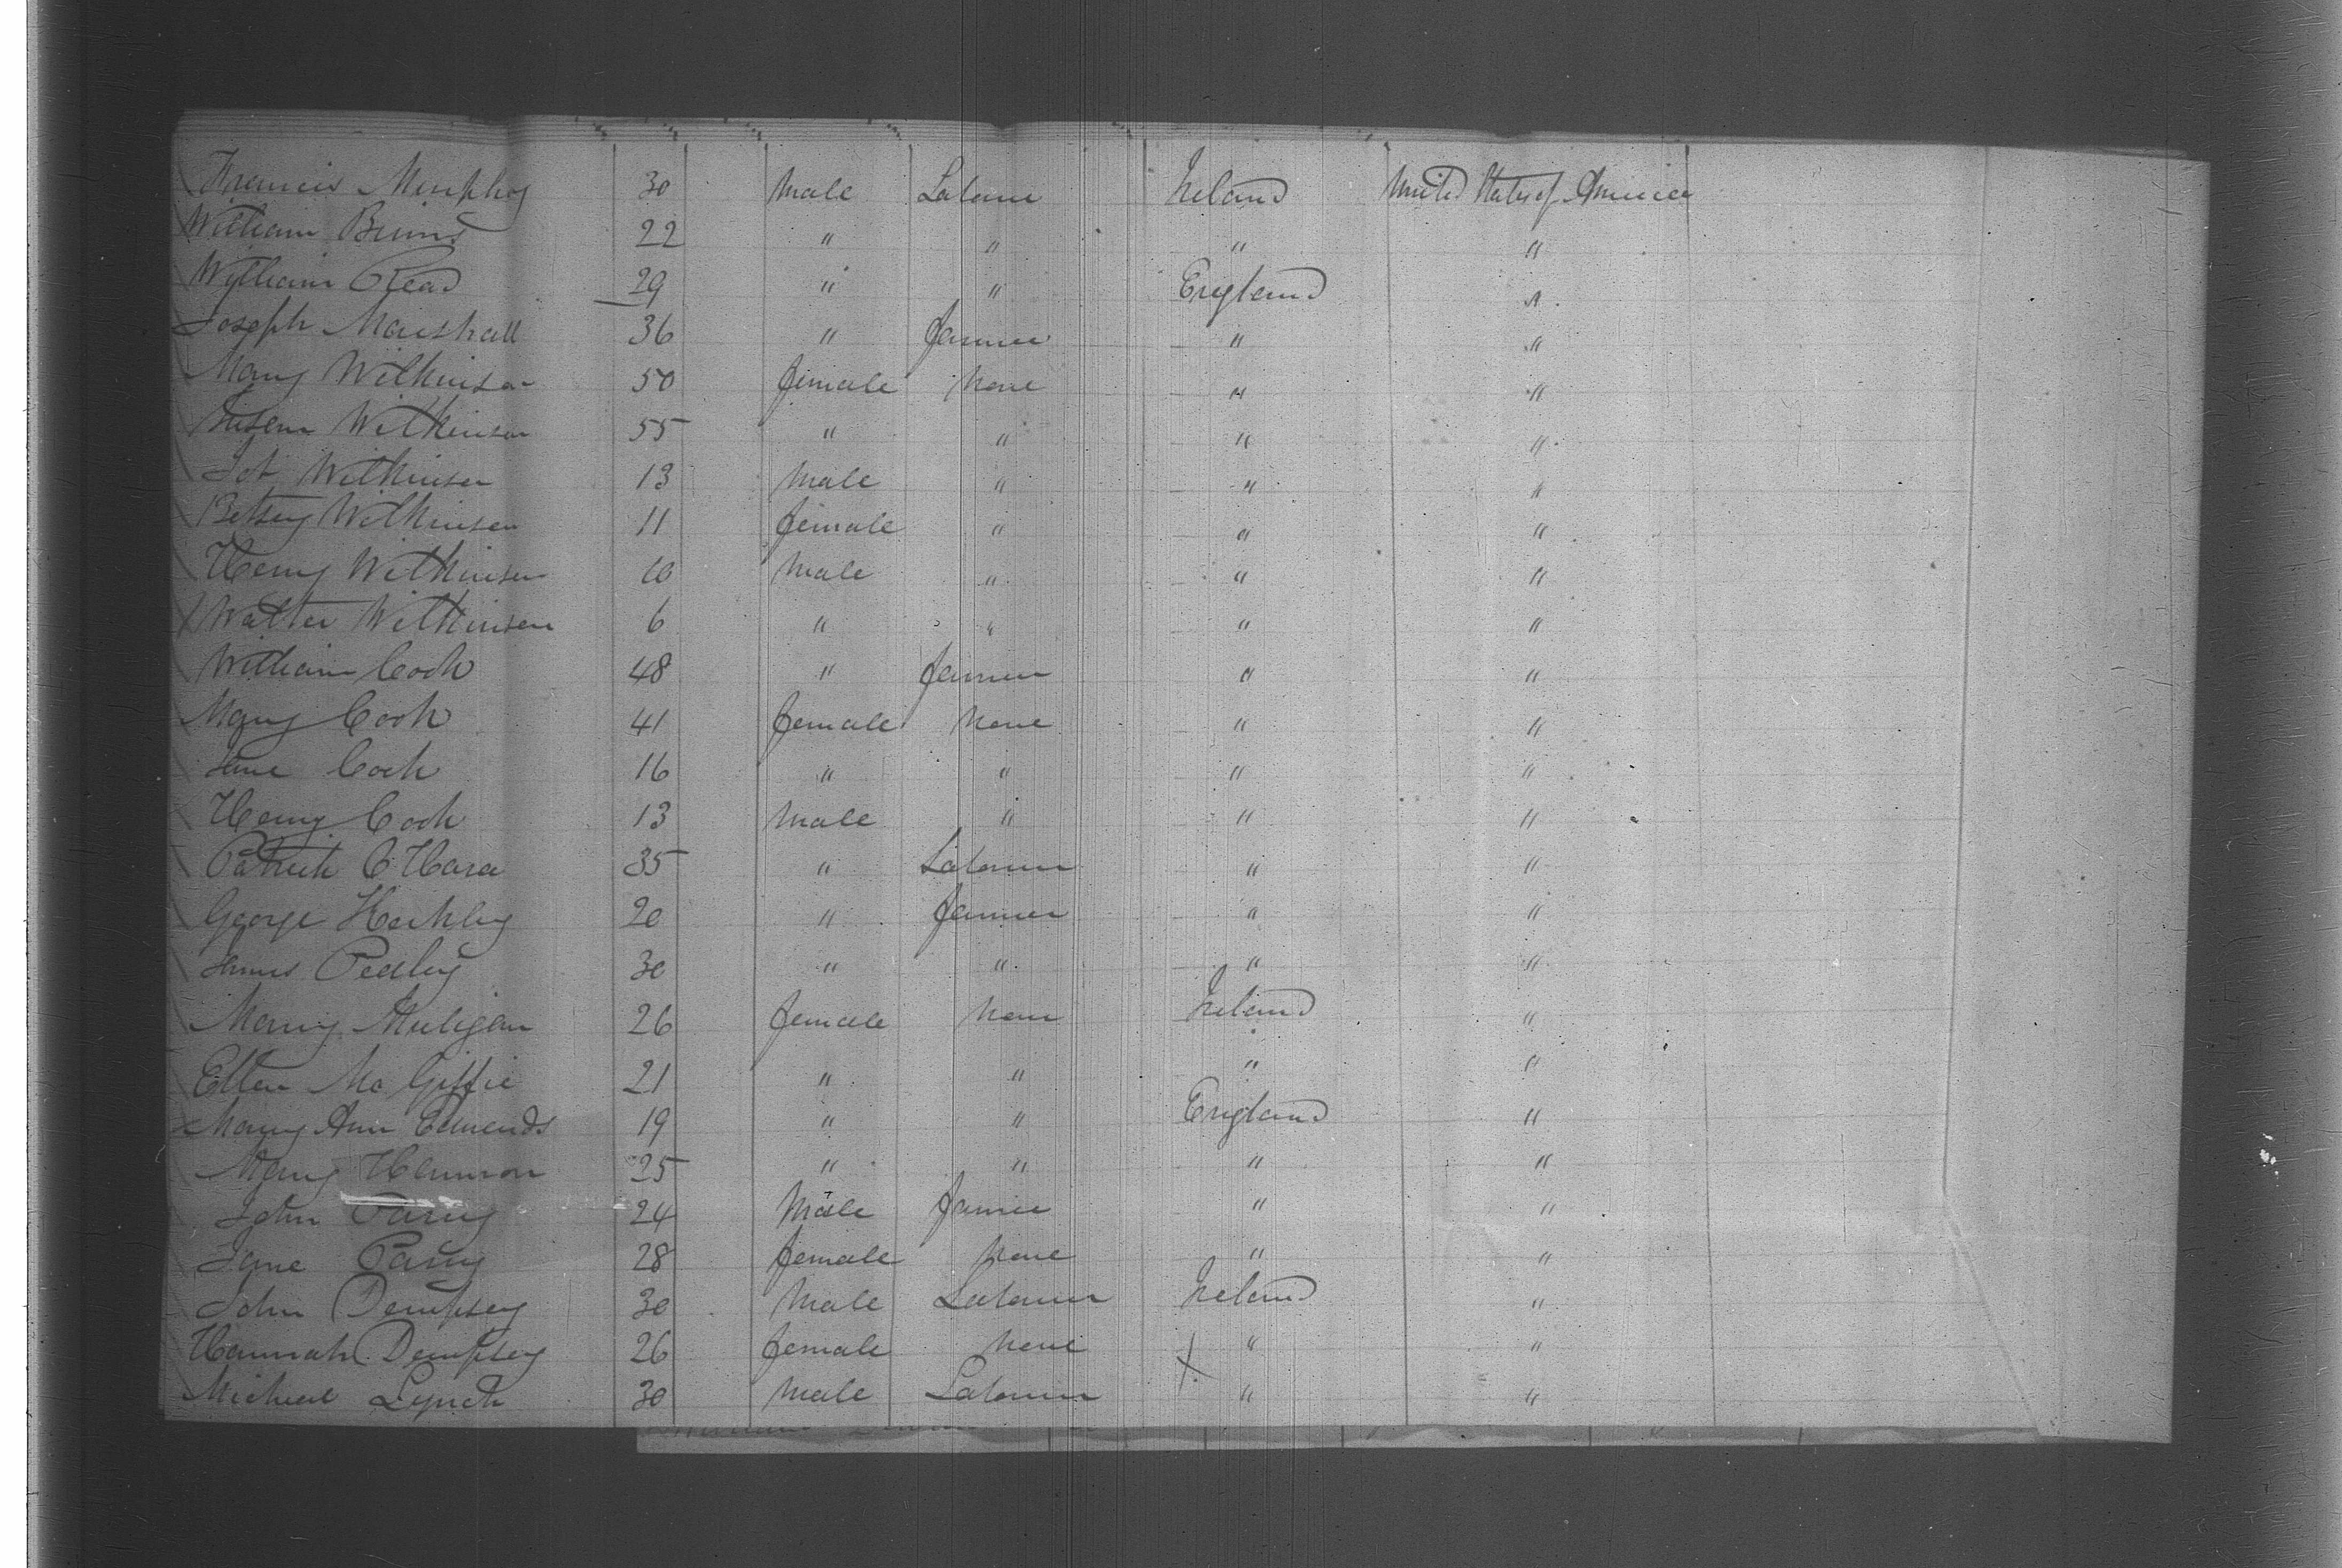 Francis Murphy 30 Male Laborer Ireland United States of America
William Burns 22 " " " "
William Read 29 " " England "
Joseph Marshall 36 " farmer " "
Mary Wilkinson 50 female None " "
Susan Wilkinson 55 " " " "
Job Wilkinson 13 Male " " "
Betsey Wilkinson 11 female " " "
Henry Wilkinson 10 Male " " "
Walter Wilkinson 6 " " " "
William Cook 48 " farmer " "
Mary Cook 41 female None " "
Jane Cook 16 " " " "
Henry Cook 13 Male " " "
Patrick O'Hara 35 " Laborer " "
George 20 " farmer " "
James 30 " " " "
Mary Muligan 26 female None Ireland "
Ellen Mc Giffie 21 " " " "
Mary Ann Edmends 19 " " England "
Mary Hannon 25 " " " "
John Parry 24 Male farmer " "
Jane Parry 28 female None " "
John Dempsey 30 Male Laborer Ireland "
Hannah Dempsey 26 female None " "
Micheal Lynch 30 Male Laborer " "